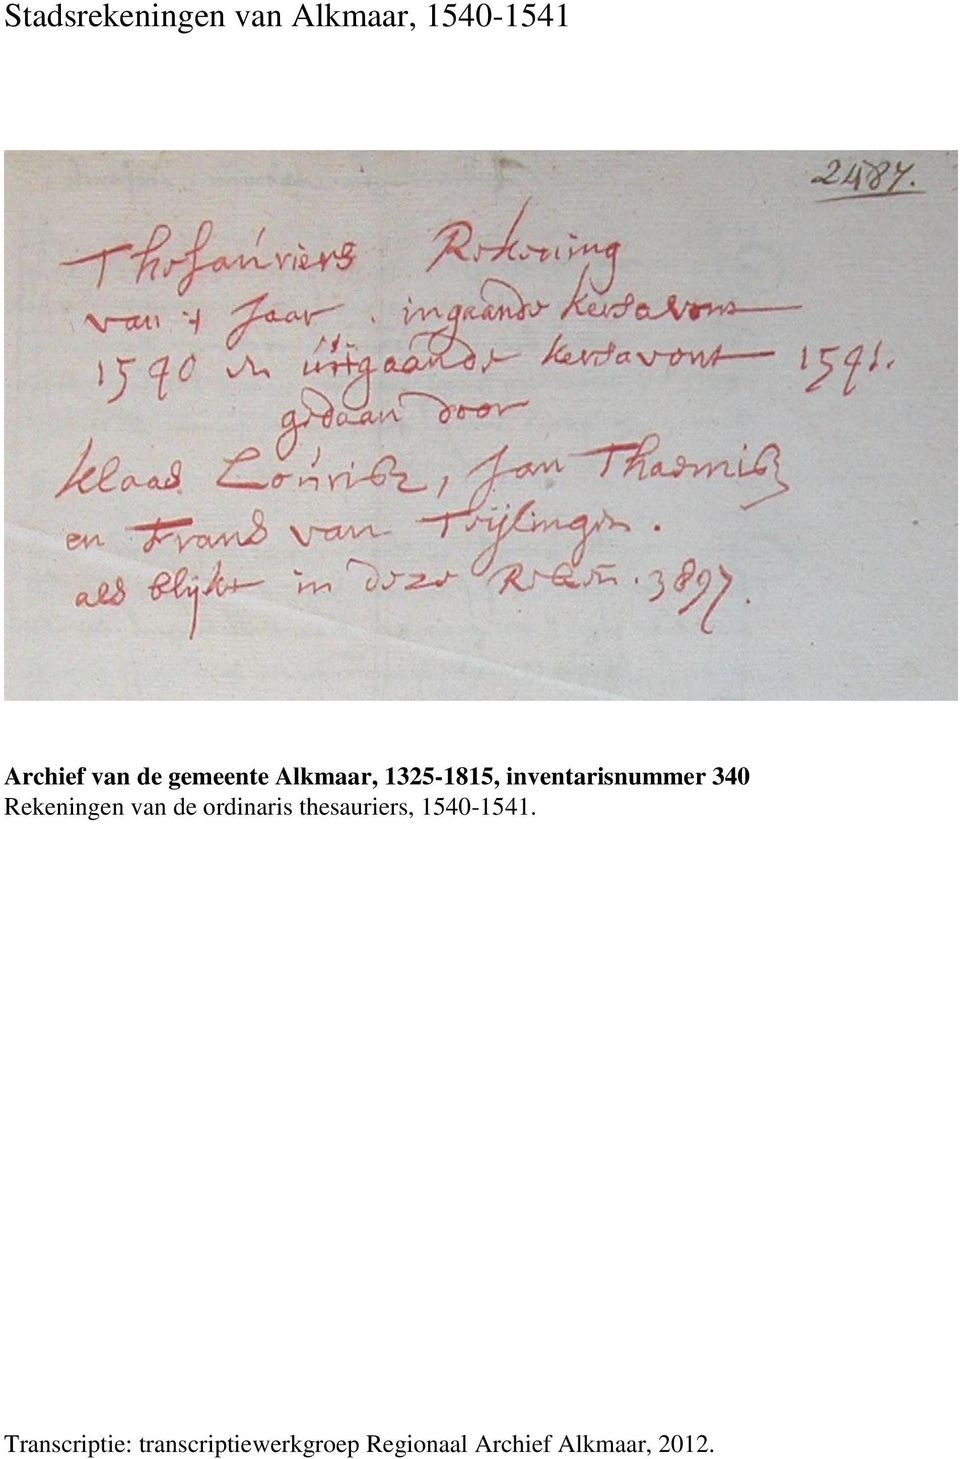 Stadsrekeningen van Alkmaar, 1540-1541
2487.
Thesauriers Rekening
van 't Jaar. ingaande kersavont
1540 en uitgaande kersavont 1541.
gedaan door
klaas Lourisz, Jan Thaemisz
en Frans van Teijlingen.
als blijkt in deze Reken. 3897.
Archief van de gemeente Alkmaar, 1325-1815, inventarisnummer 340
Rekeningen van de ordinaris thesauriers, 1540-1541.
Transcriptie: transcriptiewerkgroep Regionaal Archief Alkmaar, 2012.